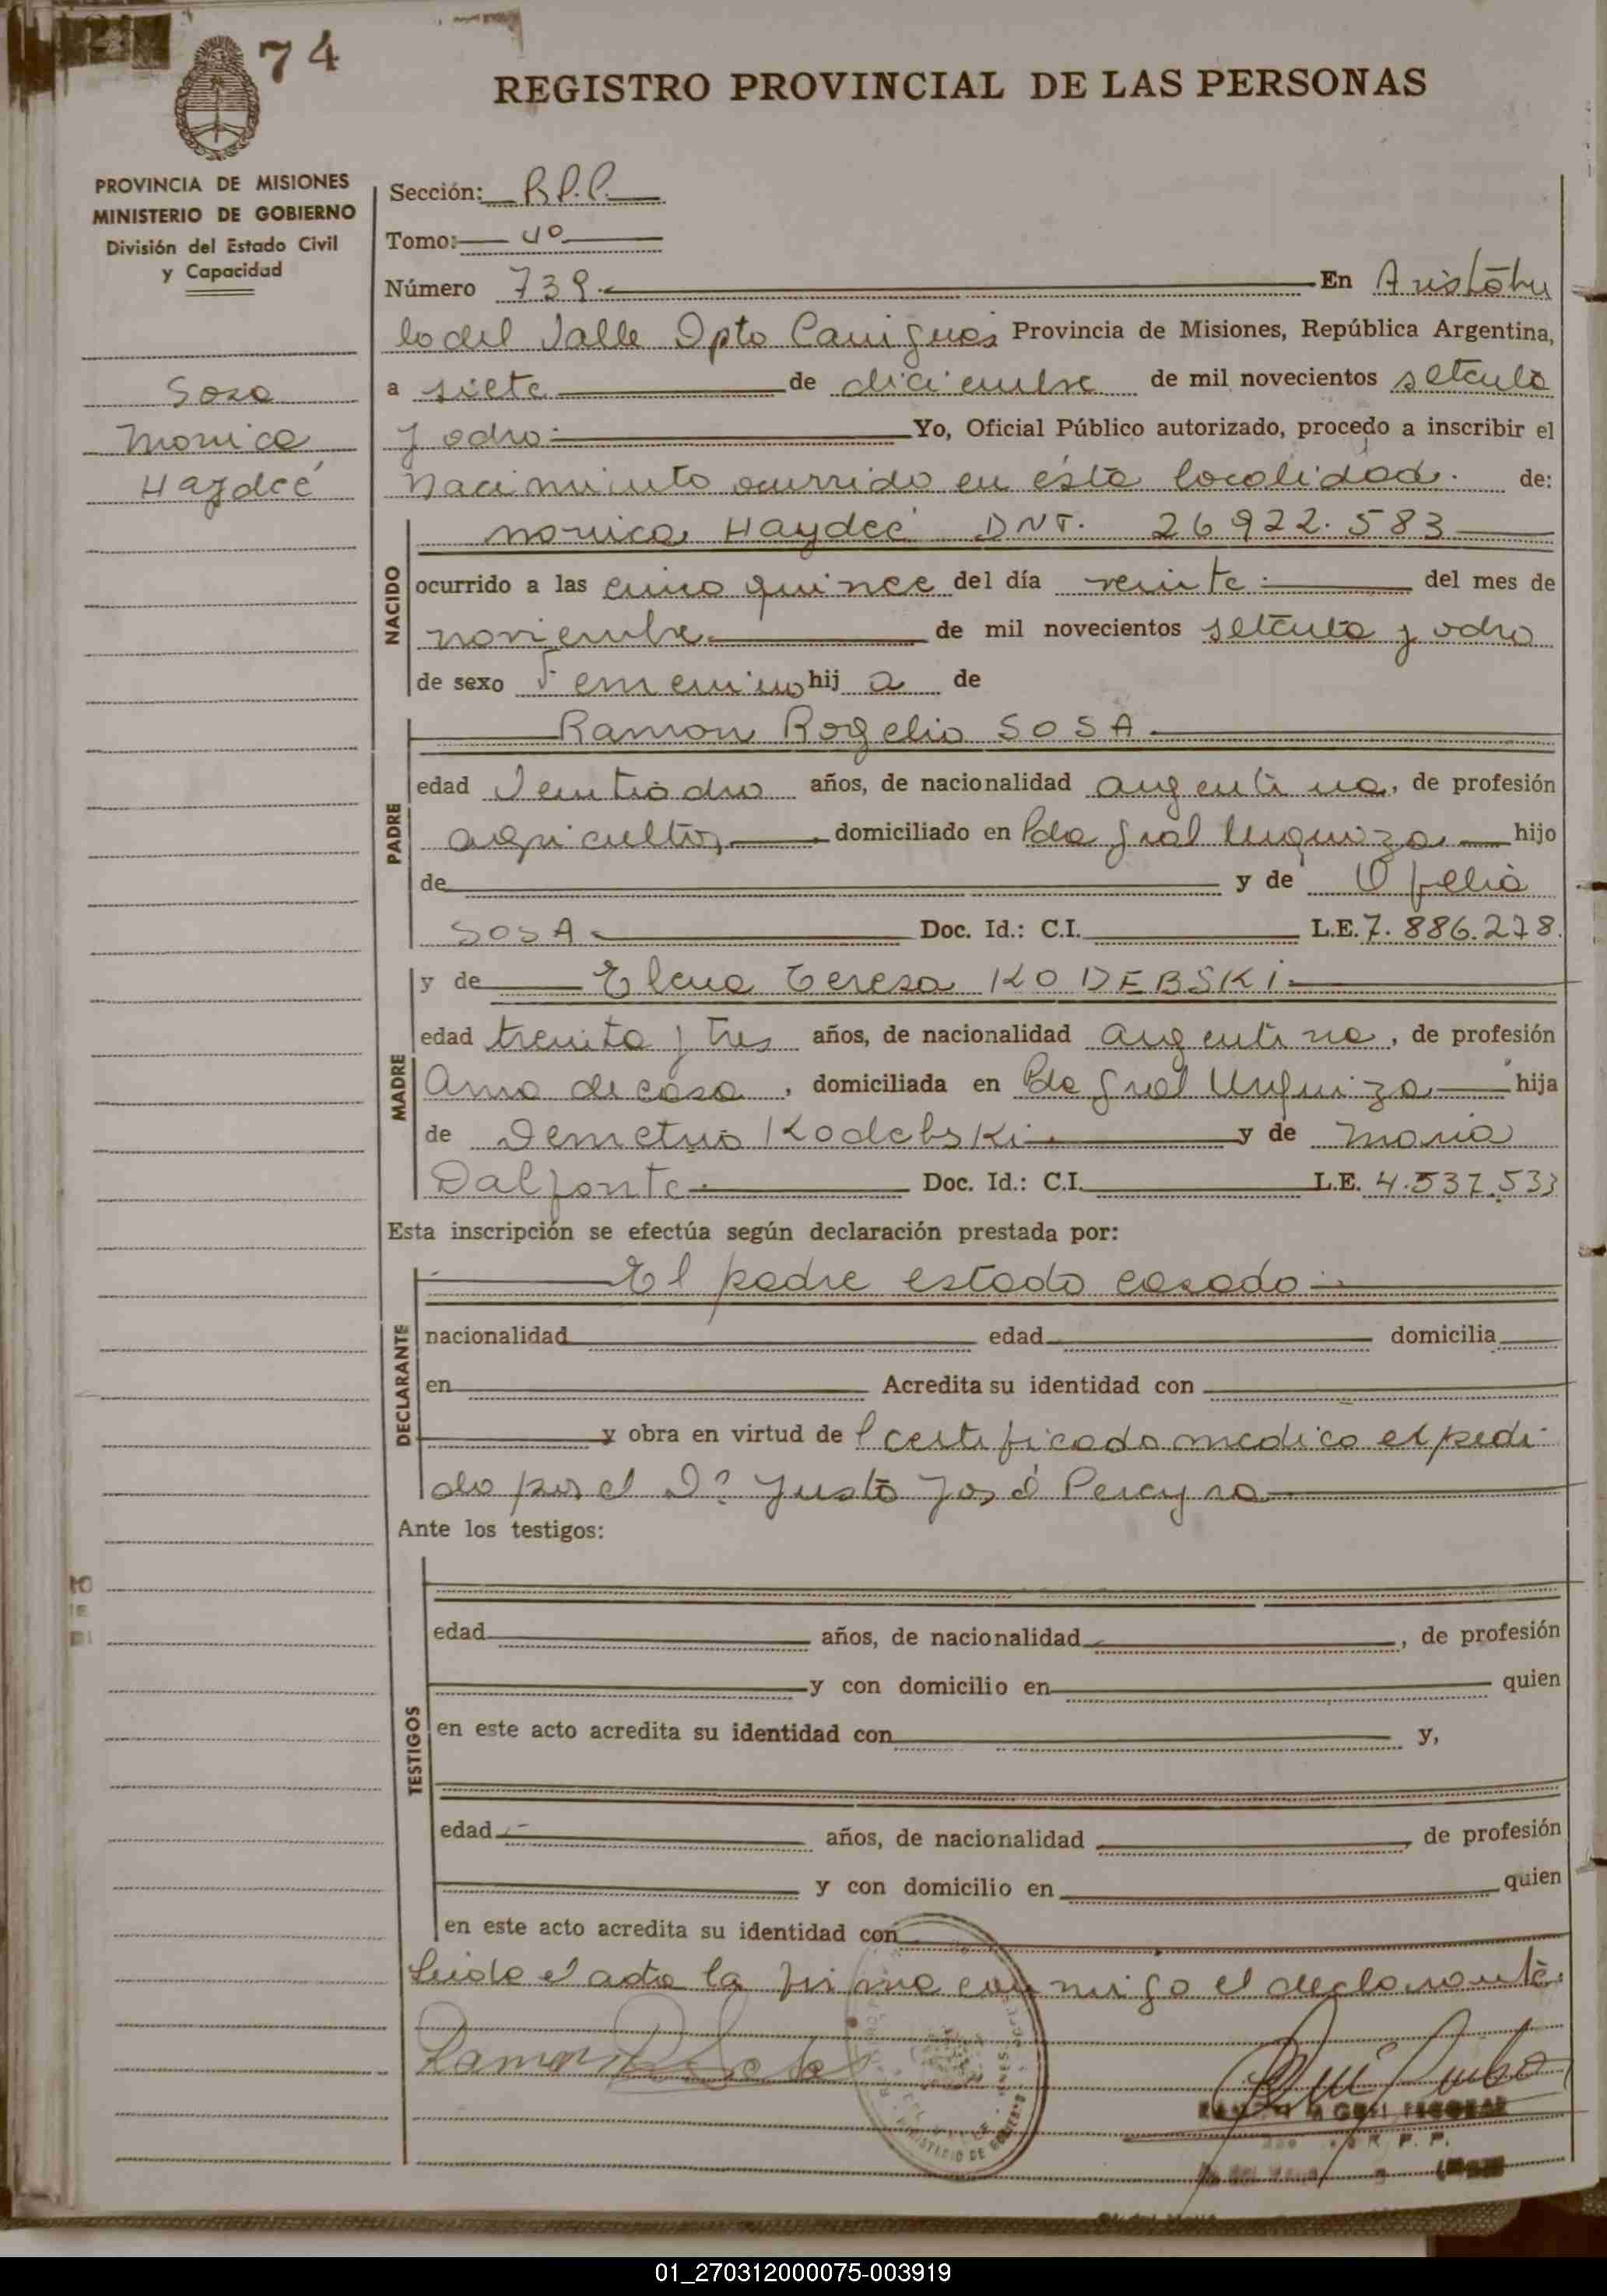 74
REGISTRO PROVINCIAL DE LAS PERSONAS
PROVINCIA DE MISIONES
MINISTERIO DE GOBIERNO
División del Estado Civil
y Capacidad
Sosa
Monica
Haydeé
Sección: R.P.P.
Tomo: 4º
Número 739. En Aristóbu
lo del Valle Dpto Cainguás Provincia de Misiones, República Argentina,
a siete de diciembre de mil novecientos setenta
y ocho. Yo, Oficial Público autorizado, procedo a inscribir el
Nacimiento ocurrido en ésta localidad. de:
NACIDO
Monica Haydeé DNI. 26922.583
ocurrido a las cinco quince del día veinte del mes de
noviembre de mil novecientos setenta y ocho
de sexo Femenino hij a de
PADRE
Ramon Rogelio SOSA
edad Veintiocho años, de nacionalidad argentina, de profesión
agricultor, domiciliado en Pda Gral Urquiza hijo
de y de Ofelia
SOSA Doc. Id.: C.I. L.E. 7.886.278.
MADRE
y de Elena Teresa KODEBSKI
edad treinta y tres años, de nacionalidad argentina, de profesión
Ama de casa, domiciliada en Pda Gral Urquiza hija
de Demetrio Kodebski y de Maria
Dalfonte. Doc. Id.: C.I. L.E. 4.537.533
Esta inscripción se efectúa según declaración prestada por:
DECLARANTE
El padre estado casado
nacionalidad edad domicilia
en Acredita su identidad con
y obra en virtud de l certificado medico expedi
do por el Dr Justo José Pereyra
Ante los testigos:
TESTIGOS
edad años, de nacionalidad , de profesión
y con domicilio en quien
en este acto acredita su identidad con y,
edad años, de nacionalidad , de profesión
y con domicilio en quien
en este acto acredita su identidad con
Leida el acta la firma conmigo el declarante.
Ramon R Sosa
R. P. P.
01_270312000075-003919